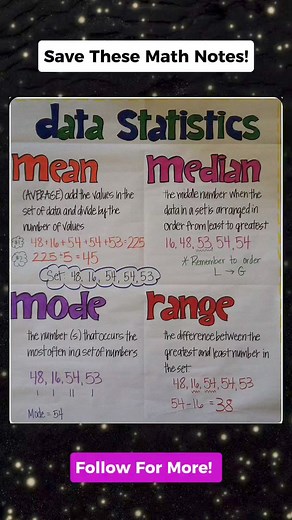 Save These Math Notes!
data Statistics
mean
(AVERAGE) add the values in the
set of data and divide by the
number of values
48+16+54+54+53=225
225÷5=45
Set: 48, 16, 54, 54, 53
median
the middle number when the
data in a set is arranged in
order from least to greatest
16, 48, 53, 54, 54
* Remember to order
L → G
mode
the number (s) that occurs the
most often in a set of numbers
48, 16, 54, 53
Mode = 54
range
the difference between the
greatest and least number in
the set
48, 16, 54, 54, 53
54-16 = 38
Follow For More!